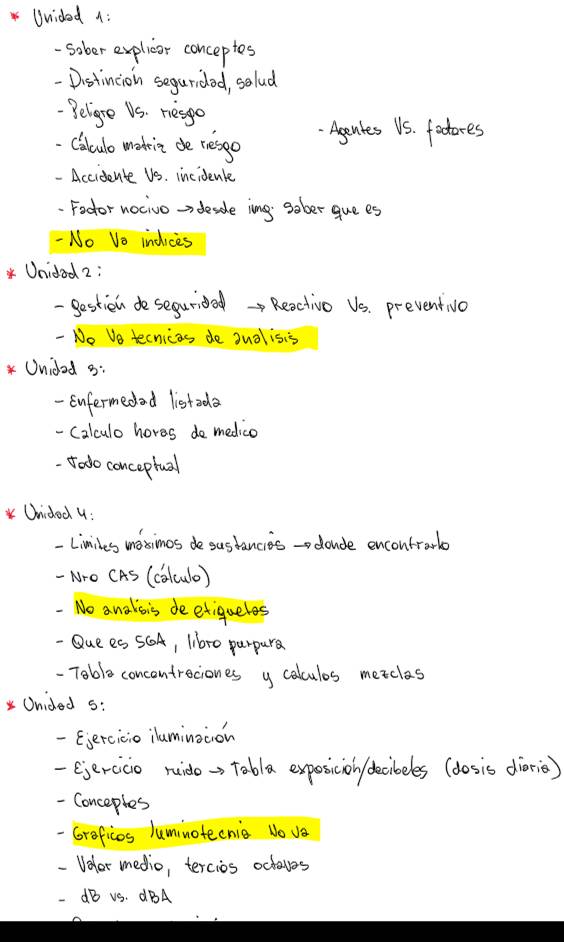 * Unidad 1:
- Saber explicar conceptos
- Distinción seguridad, salud
- Peligro Vs. riesgo
- Agentes Vs. factores
- Cálculo matriz de riesgo
- Accidente Vs. incidente
- Factor nocivo → desde img. saber que es
- No Va indices
* Unidad 2:
- gestión de seguridad → Reactivo Vs. preventivo
- No Va tecnicas de analisis
* Unidad 3:
- Enfermedad listada
- Calculo horas de medico
- Todo conceptual
* Unidad 4:
- Limites máximos de sustancias → donde encontrarlo
- Nro CAS (cálculo)
- No analisis de etiquetas
- Que es SGA, libro purpura
- Tabla concentraciones y calculos mezclas
* Unidad 5:
- Ejercicio iluminación
- Ejercicio ruido → Tabla exposición/decibeles (dosis diaria)
- Conceptos
- Graficos luminotecnia No va
- Valor medio, tercios octavas
- dB vs. dBA